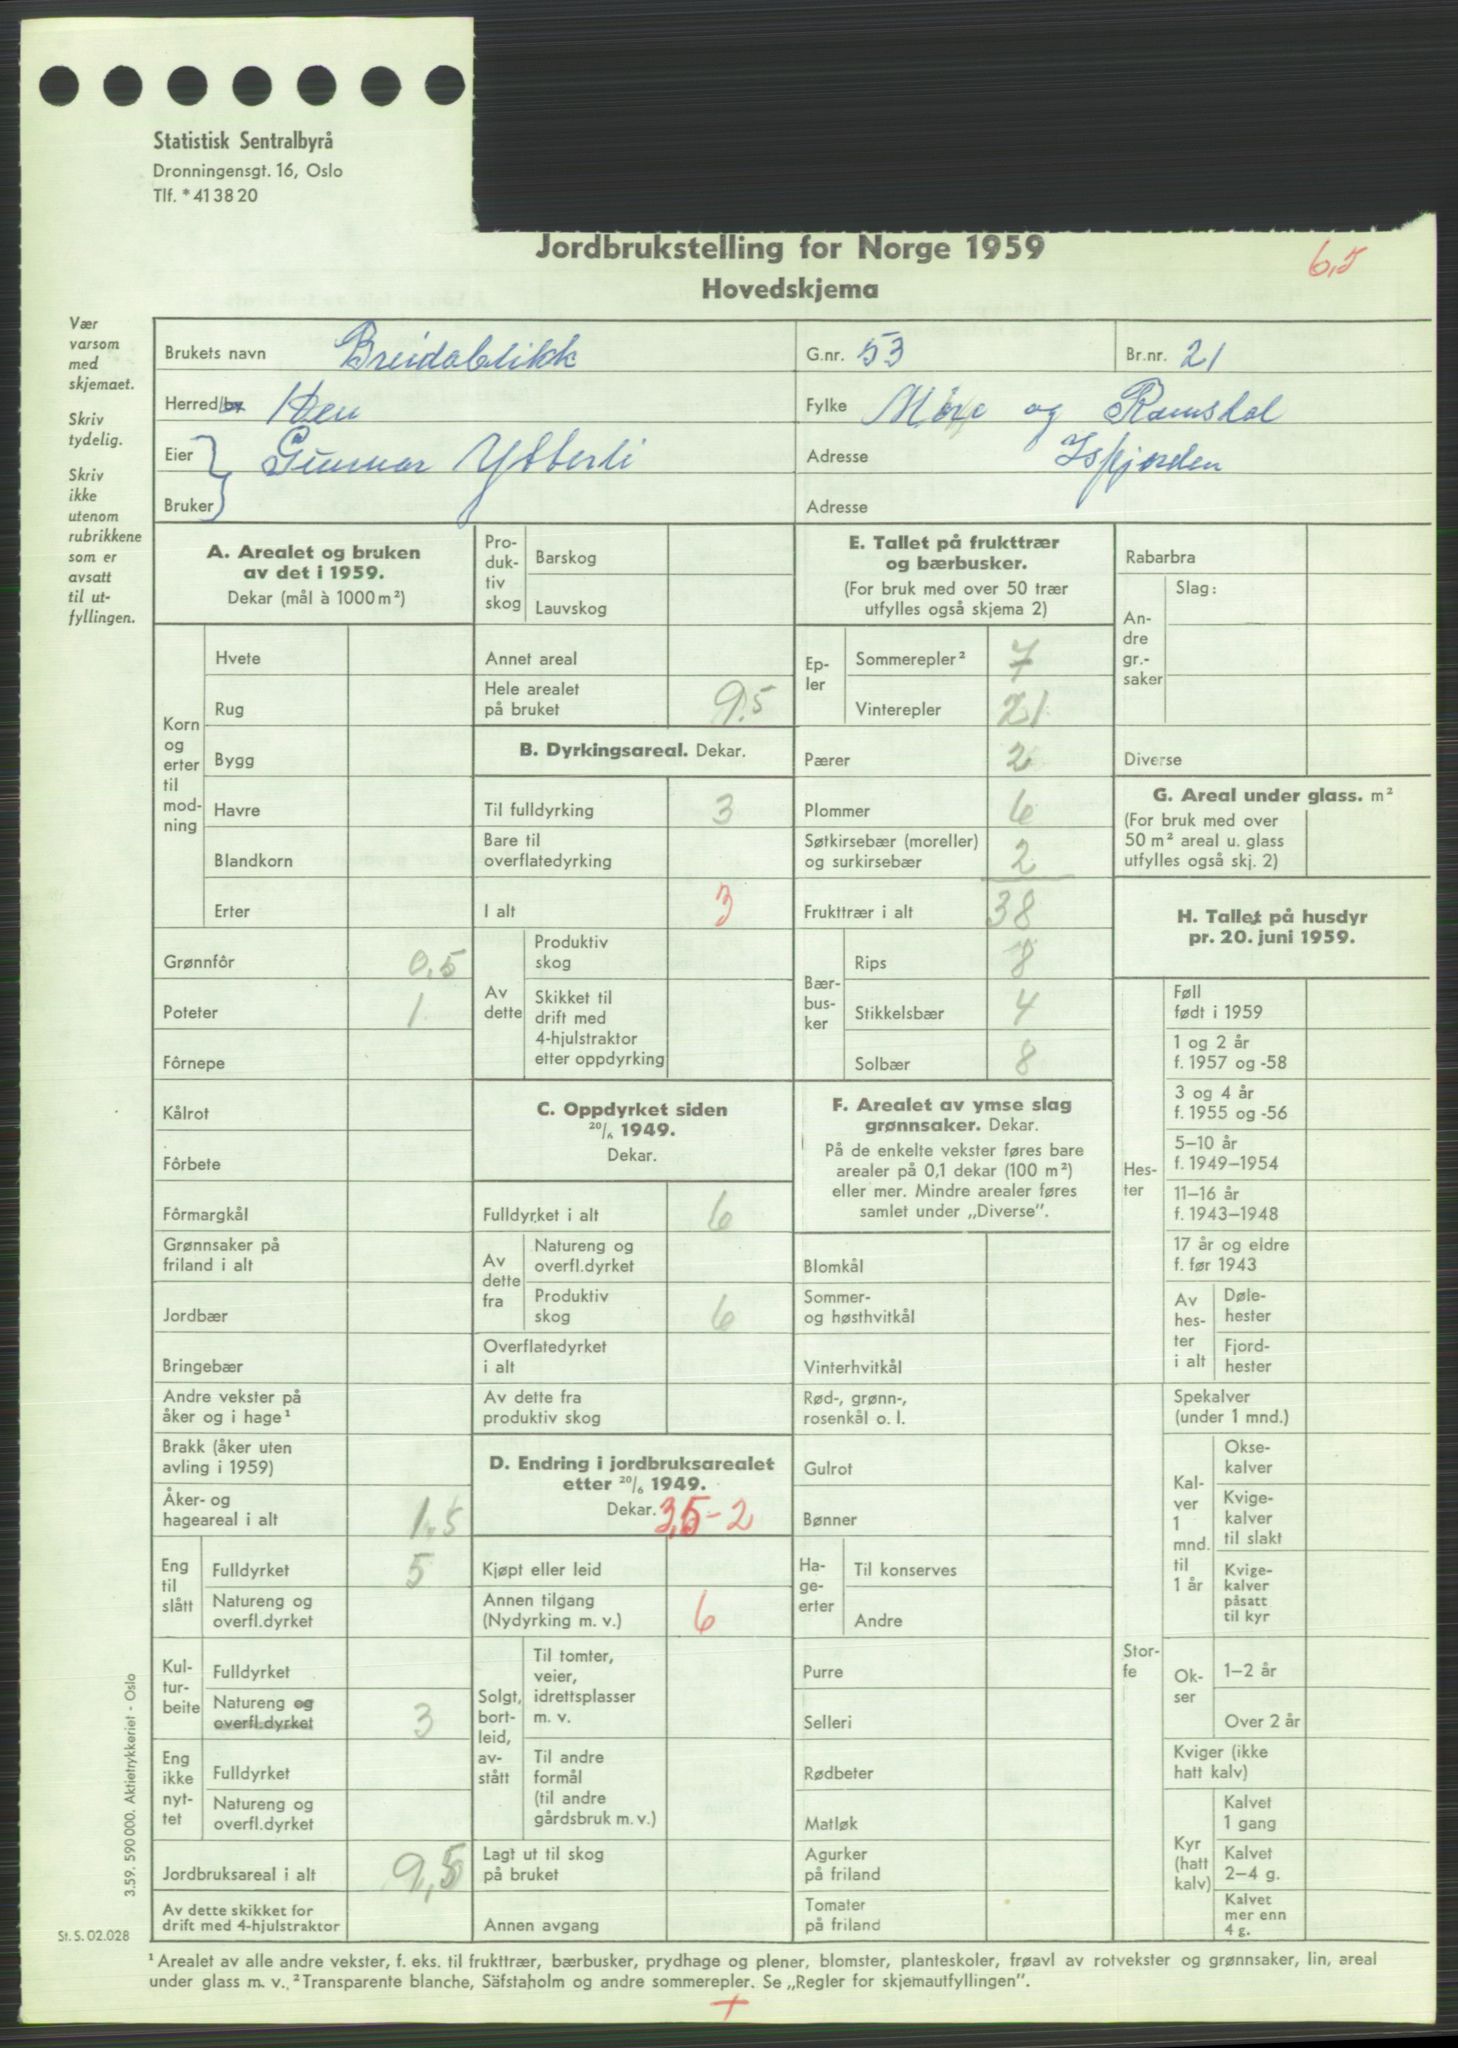 Statistisk Sentralbyrå
Dronningensgt. 16, Oslo
Tlf. * 41 38 20
Jordbrukstelling for Norge 1959
6,5
Hovedskjema
Vær
varsom
med
skjemaet.
Skriv
tydelig.
Skriv
ikke
utenom
rubrikkene
som er
avsatt
til ut-
fyllingen.
Brukets navn Breidablikk G.nr. 53 Br.nr. 21
Herred/by Hen Fylke Møre og Romsdal
Eier Gunnar Ytterli Adresse Isfjorden
Bruker Adresse
A. Arealet og bruken
av det i 1959.
Dekar (mål à 1000 m²)
Korn
og
erter
til
mod-
ning
Hvete
Rug
Bygg
Havre
Blandkorn
Erter
Grønnfôr 0,5
Poteter 1
Fôrnepe
Kålrot
Fôrbete
Fôrmargkål
Grønnsaker på
friland i alt
Jordbær
Bringebær
Andre vekster på
åker og i hage¹
Brakk (åker uten
avling i 1959)
Åker- og
hageareal i alt 1,5
Eng
til
slått
Fulldyrket 5
Natureng og
overfl.dyrket
Kul-
tur-
beite
Fulldyrket
Natureng og
overfl.dyrket 3
Eng
ikke
nyt-
tet
Fulldyrket
Natureng og
overfl.dyrket
Jordbruksareal i alt 9,5
Av dette skikket for
drift med 4-hjulstraktor
Pro-
duk-
tiv
skog
Barskog
Lauvskog
Annet areal
Hele arealet
på bruket 9.5
B. Dyrkingsareal. Dekar.
Til fulldyrking 3
Bare til
overflatedyrking
I alt 3
Av
dette
Produktiv
skog
Skikket til
drift med
4-hjulstraktor
etter oppdyrking
C. Oppdyrket siden
20/6 1949.
Dekar.
Fulldyrket i alt 6
Av
dette
fra
Natureng og
overfl.dyrket
Produktiv
skog 6
Overflatedyrket
i alt
Av dette fra
produktiv skog
D. Endring i jordbruksarealet
etter 20/6 1949.
Dekar. 3,5-2
Kjøpt eller leid
Annen tilgang
(Nydyrking m. v.) 6
Solgt,
bort-
leid,
av-
stått
Til tomter,
veier,
idrettsplasser
m. v.
Til andre
formål
(til andre
gårdsbruk m. v.)
Lagt ut til skog
på bruket
Annen avgang
E. Tallet på frukttrær
og bærbusker.
(For bruk med over 50 trær
utfylles også skjema 2)
Ep-
ler
Sommerepler² 7
Vinterepler 21
Pærer 2
Plommer 6
Søtkirsebær (moreller)
og surkirsebær 2
Frukttrær i alt 38
Bær-
bus-
ker
Rips 8
Stikkelsbær 4
Solbær 8
F. Arealet av ymse slag
grønnsaker. Dekar.
På de enkelte vekster føres bare
arealer på 0,1 dekar (100 m²)
eller mer. Mindre arealer føres
samlet under „Diverse”.
Blomkål
Sommer-
og høsthvitkål
Vinterhvitkål
Rød-, grønn-,
rosenkål o. l.
Gulrot
Bønner
Ha-
ge-
erter
Til konserves
Andre
Purre
Selleri
Rødbeter
Matløk
Agurker
på friland
Tomater
på friland
Rabarbra
An-
dre
gr.-
saker
Slag:
Diverse
G. Areal under glass. m²
(For bruk med over
50 m² areal u. glass
utfylles også skj. 2)
H. Tallet på husdyr
pr. 20. juni 1959.
Hes-
ter
Føll
født i 1959
1 og 2 år
f. 1957 og -58
3 og 4 år
f. 1955 og -56
5–10 år
f. 1949–1954
11–16 år
f. 1943–1948
17 år og eldre
f. før 1943
Av
hes-
ter
i alt
Døle-
hester
Fjord-
hester
Stor-
fe
Spekalver
(under 1 mnd.)
Kal-
ver
1
mnd.
til
1 år
Okse-
kalver
Kvige-
kalver
til slakt
Kvige-
kalver
påsatt
til kyr
Ok-
ser
1–2 år
Over 2 år
Kviger (ikke
hatt kalv)
Kyr
(hatt
kalv)
Kalvet
1 gang
Kalvet
2–4 g.
Kalvet
mer enn
4 g.
3.59. 590 000. Aktietrykkeriet - Oslo
St. S. 02.028
¹ Arealet av alle andre vekster, f. eks. til frukttrær, bærbusker, prydhage og plener, blomster, planteskoler, frøavl av rotvekster og grønnsaker, lin, areal
under glass m. v. ² Transparente blanche, Säfstaholm og andre sommerepler. Se „Regler for skjemautfyllingen”.
+